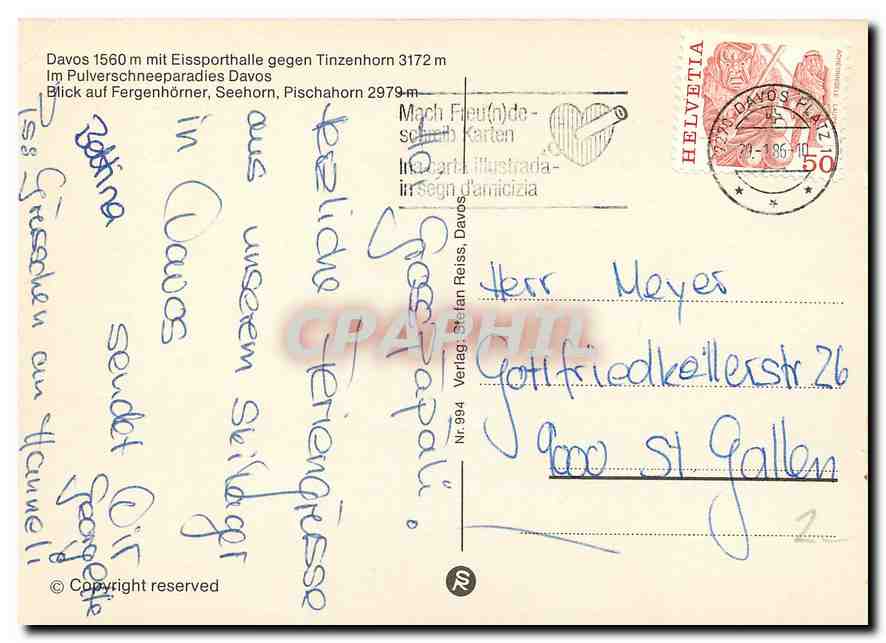 Davos 1560 m mit Eissporthalle gegen Tinzenhorn 3172 m
Im Pulverschneeparadies Davos
Blick auf Fergenhörner, Seehorn, Pischahorn 2979 m
HELVETIA
50
7270 DAVOS PLATZ 1
Mach Freu(n)de-
schreib Karten
Ina carta illustrada-
in segn d'amicizia
Grosspapali.
Feriengrüsse
aus unserem Skilager
in Davos
sendet Dir
Georgette
Bettina
Grüsschen an Hanneli
Nr. 994 Verlag: Stefan Reiss, Davos
Herr Meyer
Gottfriedkellerstr 26
9000 St. Gallen
CPAPHIL
© Copyright reserved